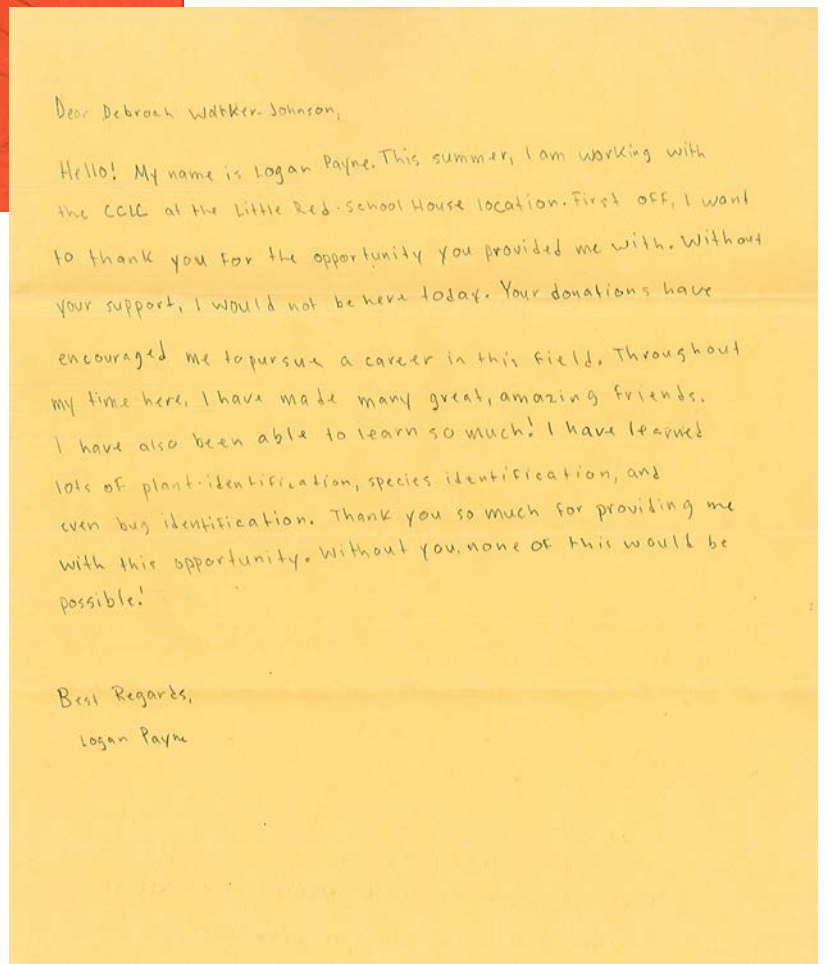 Dear Debroah Walker-Johnson,
Hello! My name is Logan Payne. This summer, I am working with
the CCIC at the Little Red-School House location. First off, I want
to thank you for the opportunity you provided me with. Without
your support, I would not be here today. Your donations have
encouraged me to pursue a career in this field. Throughout
my time here, I have made many great, amazing friends.
I have also been able to learn so much! I have learned
lots of plant-identification, species identification, and
even bug identification. Thank you so much for providing me
with this opportunity. Without you, none of this would be
possible!
Best Regards,
Logan Payne